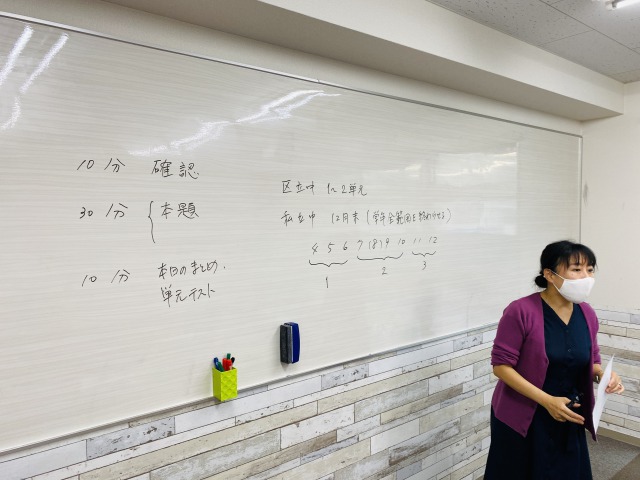 10分 確認
30分 { 本題
10分 本日のまとめ.
単元テスト
区立中 1~2単元
私立中 12月末 (学年全範囲を終わらせる)
4 5 6 7 (8) 9 10 11 12
1 2 3